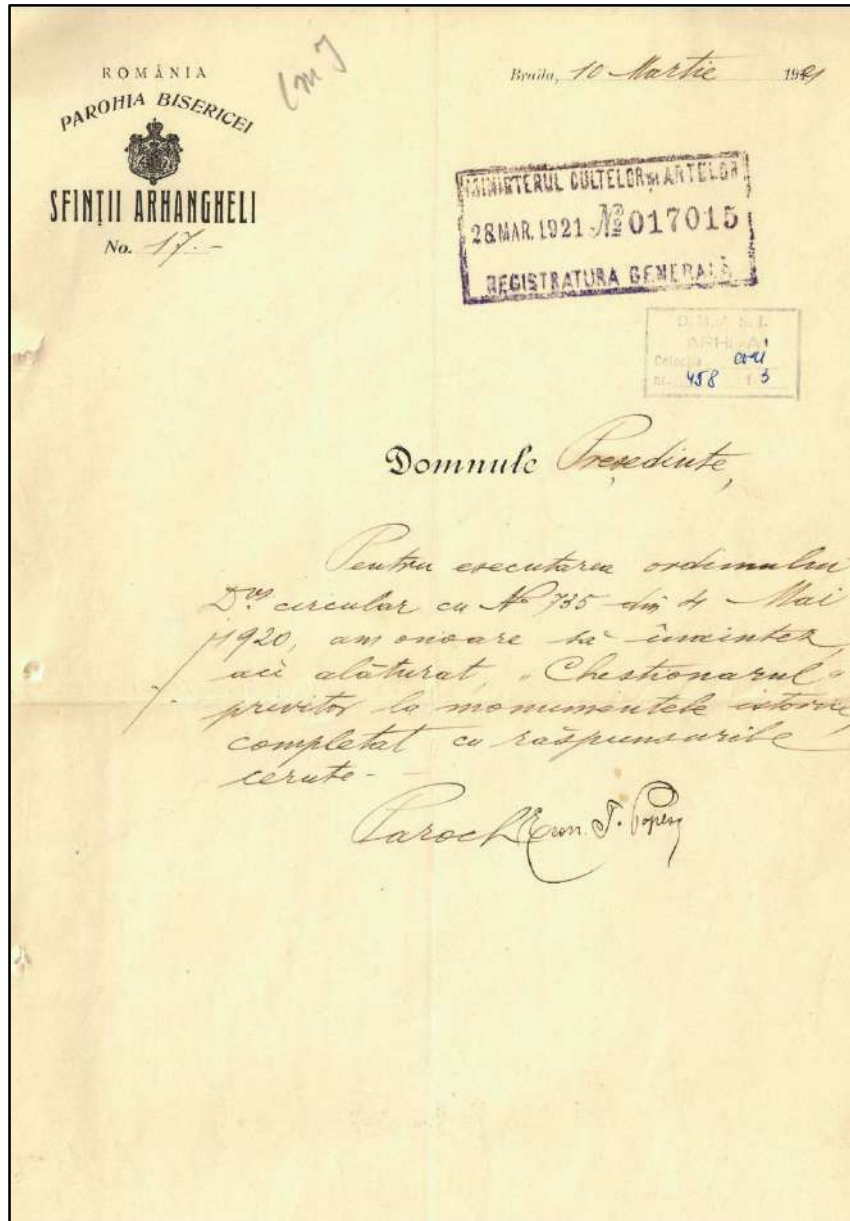 ROMÂNIA
PAROHIA BISERICEI
SFINȚII ARHANGHELI
No. 17.-
Braila, 10 Martie 1921
MINISTERUL CULTELOR și ARTELOR
28 MAR. 1921 No 017015
REGISTRATURA GENERALĂ
D. M. A. S. I.
ARHIVA
Colecția
nr. 458 3
Domnule Președinte,
Pentru executarea ordinului
Dvs circular cu No 735 din 4 Mai
1920, am onoare să înaintez,
aci alăturat, "Chestionarul"
privitor la monumentele istorice,
completat cu răspunsurile
cerute.-
Paroch Econ. T. Popescu